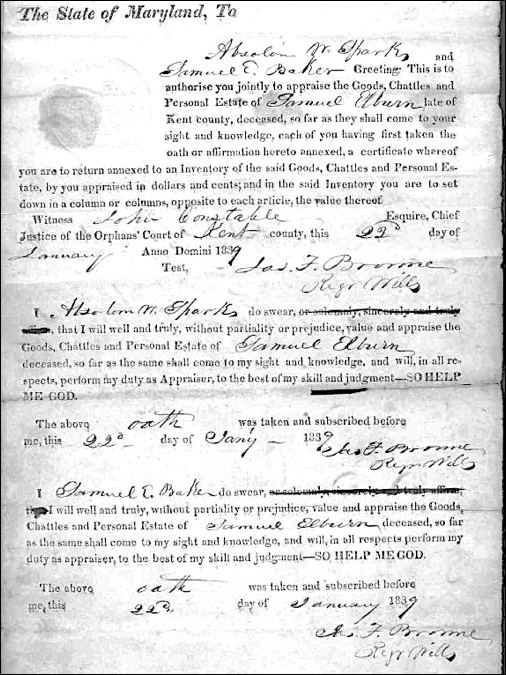 The State of Maryland, To
Absolom W. Sparks and
Samuel E. Baker Greeting: This is to
authorise you jointly to appraise the Goods, Chattles and
Personal Estate of Samuel Elburn late of
Kent county, deceased, so far as they shall come to your
sight and knowledge, each of you having first taken the
oath or affirmation hereto annexed, a certificate whereof
you are to return annexed to an Inventory of the said Goods, Chattles and Personal Es-
tate, by you appraised in dollars and cents; and in the said Inventory you are to set
down in a column or columns, opposite to each article, the value thereof
Witness John Constable Esquire, Chief
Justice of the Orphans' Court of Kent county, this 22d day of
January Anno Domini 1839
Test, Jas. F. Browne
Regr Wills
I Absolom W. Sparks do swear, or solemnly, sincerely and truly
affirm, that I will well and truly, without partiality or prejudice, value and appraise the
Goods, Chattles and Personal Estate of Samuel Elburn
deceased, so far as the same shall come to my sight and knowledge, and will, in all re-
spects, perform my duty as Appraiser, to the best of my skill and judgment—SO HELP
ME GOD.
The above oath was taken and subscribed before
me, this 22d day of Jany 1839
Jas. F. Browne
Regr Wills
I Samuel E. Baker do swear, or solemnly, sincerely and truly affirm,
that I will well and truly, without partiality or prejudice, value and appraise the Goods,
Chattles and Personal Estate of Samuel Elburn deceased, so far
as the same shall come to my sight and knowledge, and will, in all respects perform my
duty as appraiser, to the best of my skill and judgment—SO HELP ME GOD.
The above oath was taken and subscribed before
me, this 22d day of January 1839
Jas. F. Browne
Regr Wills